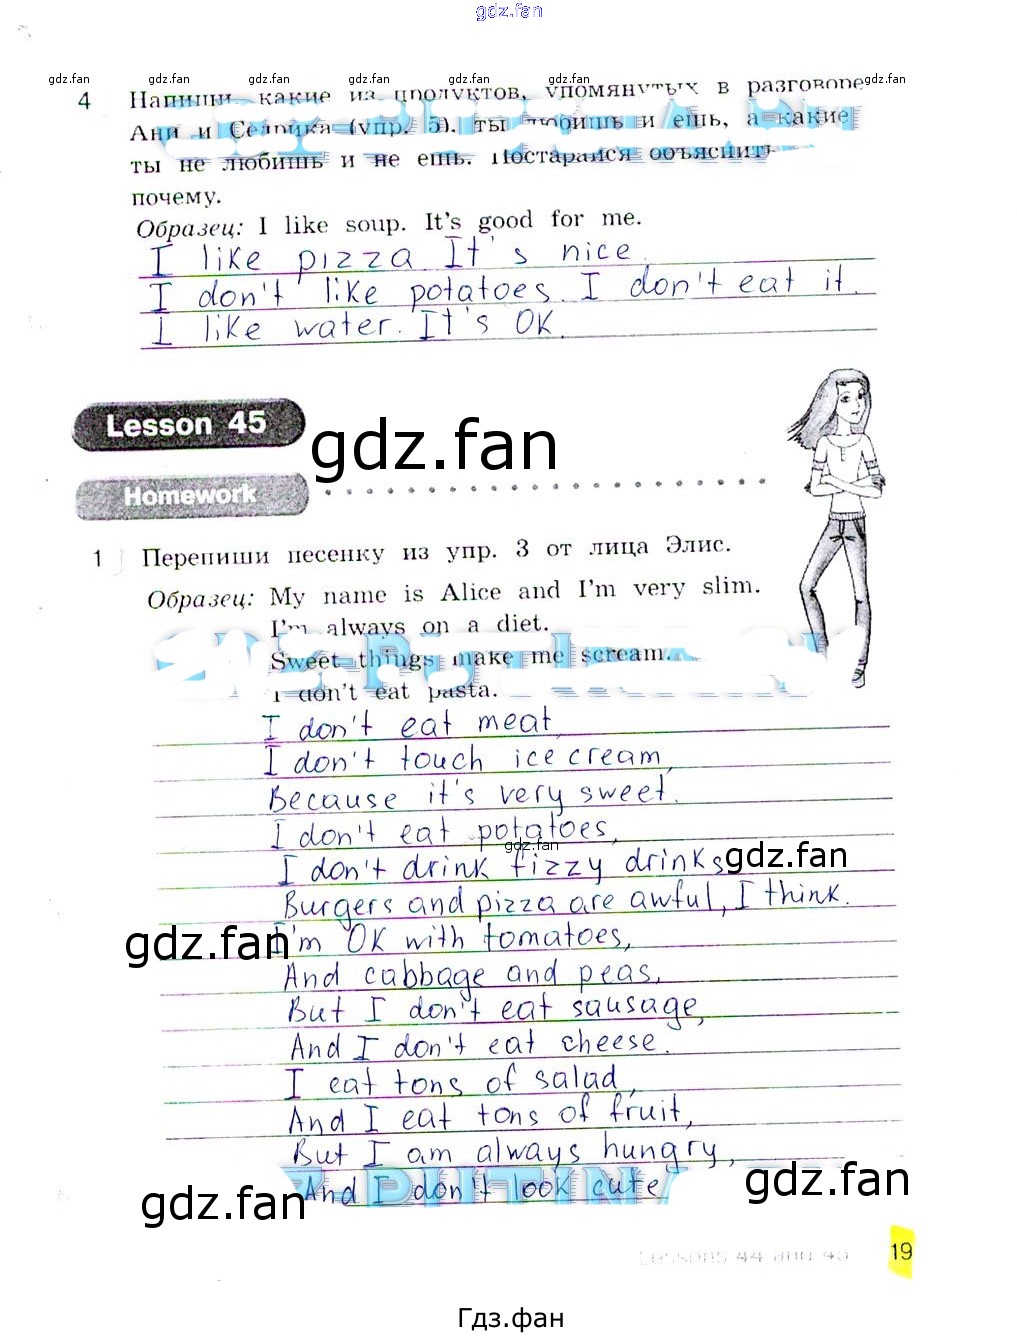 gdz.fan
gdz.fan gdz.fan gdz.fan gdz.fan gdz.fan gdz.fan gdz.fan gdz.fan gdz.fan
4 Напиши, какие из продуктов, упомянутых в разговоре
Ани и Седрика (упр. 5), ты любишь и ешь, а какие
ты не любишь и не ешь. Постарайся объяснить
почему.
Образец: I like soup. It's good for me.
I like pizza. It's nice.
I don't like potatoes. I don't eat it.
I like water. It's OK.
Lesson 45
gdz.fan
Homework
1 Перепиши песенку из упр. 3 от лица Элис.
Образец: My name is Alice and I'm very slim.
I'm always on a diet.
Sweet things make me scream.
I don't eat pasta.
I don't eat meat,
I don't touch ice cream,
Because it's very sweet.
I don't eat potatoes,
gdz.fan
I don't drink fizzy drinks
gdz.fan
Burgers and pizza are awful, I think.
gdz.fan
I'm OK with tomatoes,
And cabbage and peas,
But I don't eat sausage,
And I don't eat cheese.
I eat tons of salad,
And I eat tons of fruit,
But I am always hungry,
And I don't look cute
gdz.fan
gdz.fan
Lessons 44 and 45
19
Гдз.фан